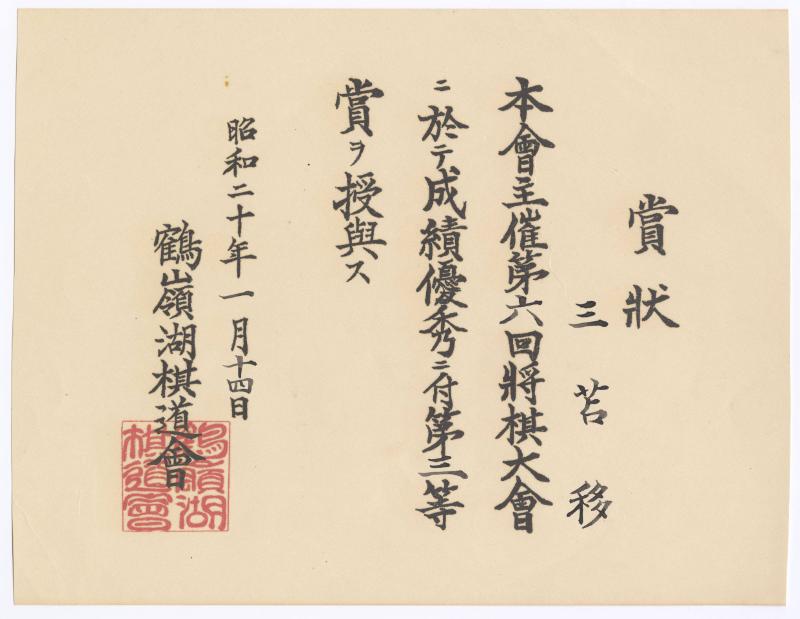 賞狀
三苫移
本會主催第六回將棋大會
ニ於テ成績優秀ニ付第三等
賞ヲ授與ス
昭和二十年一月十四日
鶴嶺湖棋道會
鶴嶺湖棋道會